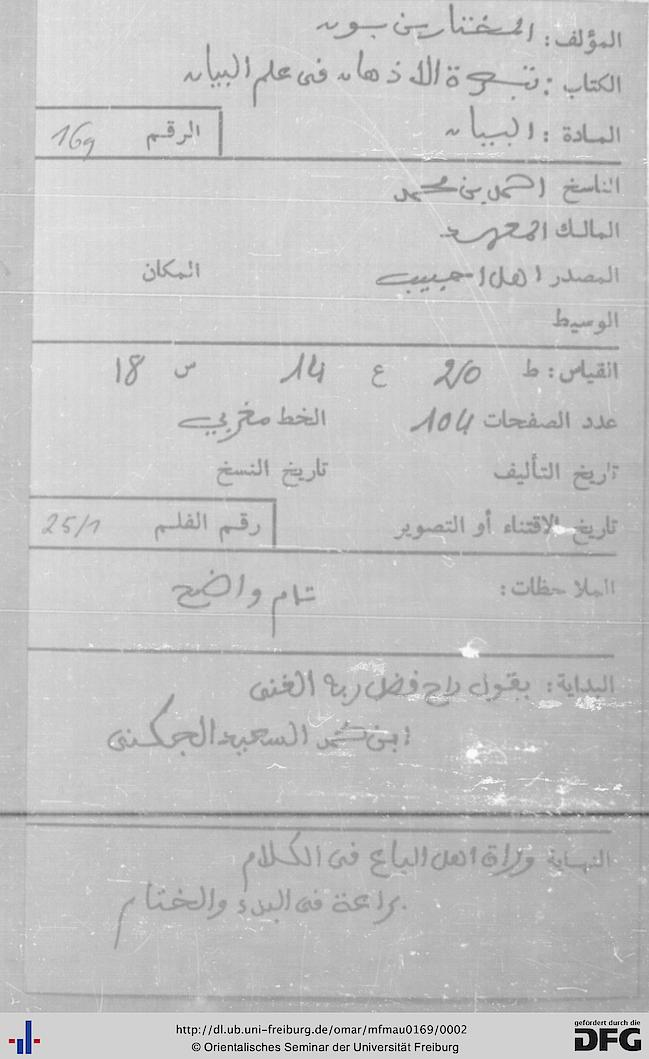 المؤلف: المختار بن بون
الكتاب: تبصرة الاذهان فى علم البيان
المادة: البيان
الرقم 169
الناسخ احمد بن محمد
المالك المعهد
المصدر اهل احبيب المكان
الوسيط
القياس: ط 20 ع 14 س 18
عدد الصفحات 104 الخط مغربي
تاريخ التأليف تاريخ النسخ
تاريخ الاقتناء أو التصوير رقم الفلم 25/1
الملاحظات: تام واضح
البداية: يقول راج فضل ربه الغنى
ابن محمد السعيد الجكنى
النهاية وراة اهل الباع فى الكلام
براعة فى البدء والختام
http://dl.ub.uni-freiburg.de/omar/mfmau0169/0002
© Orientalisches Seminar der Universität Freiburg
gefördert durch die
DFG